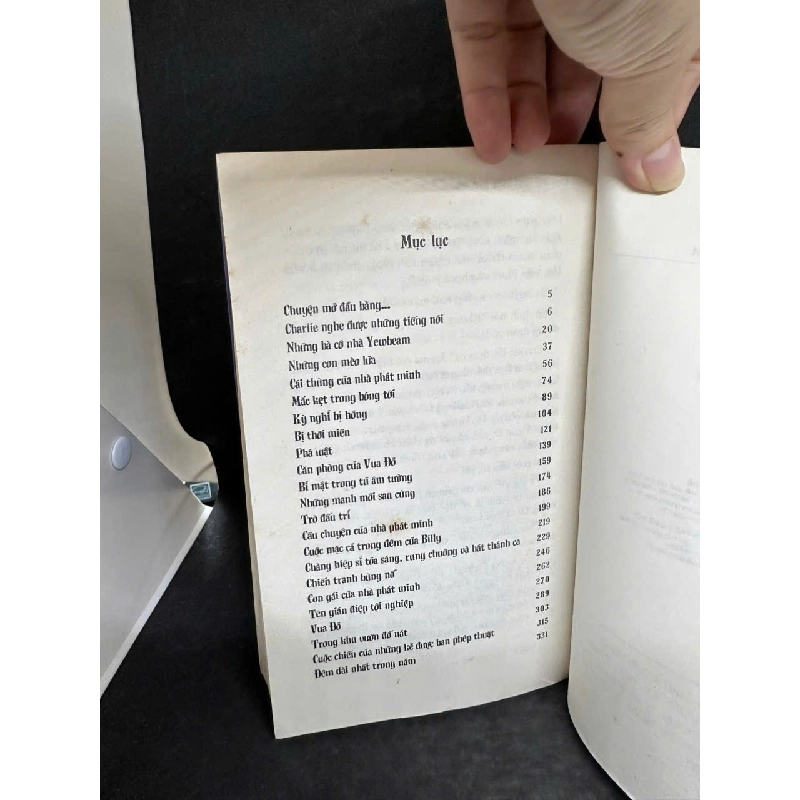 Mục lục
Chuyện mở đầu bằng... 5
Charlie nghe được những tiếng nói 6
Những bà cô nhà Yewbeam 20
Những con mèo lửa 37
Cái thùng của nhà phát minh 56
Mắc kẹt trong bóng tối 74
Kỳ nghỉ bị hỏng 89
Bị thôi miên 104
Phá luật 121
Căn phòng của Vua Đỏ 139
Bí mật trong tủ âm tường 159
Những manh mối sau cùng 174
Trò đấu trí 186
Câu chuyện của nhà phát minh 199
Cuộc mặc cả trong đêm của Billy 219
Chàng hiệp sĩ tỏa sáng, rung chuông và hát thánh ca 229
Chiến tranh bùng nổ 246
Con gái của nhà phát minh 262
Tên gián điệp tội nghiệp 270
Vua Đỏ 289
Trong khu vườn đổ nát 303
Cuộc chiến của những kẻ được ban phép thuật 315
Đêm dài nhất trong năm 331